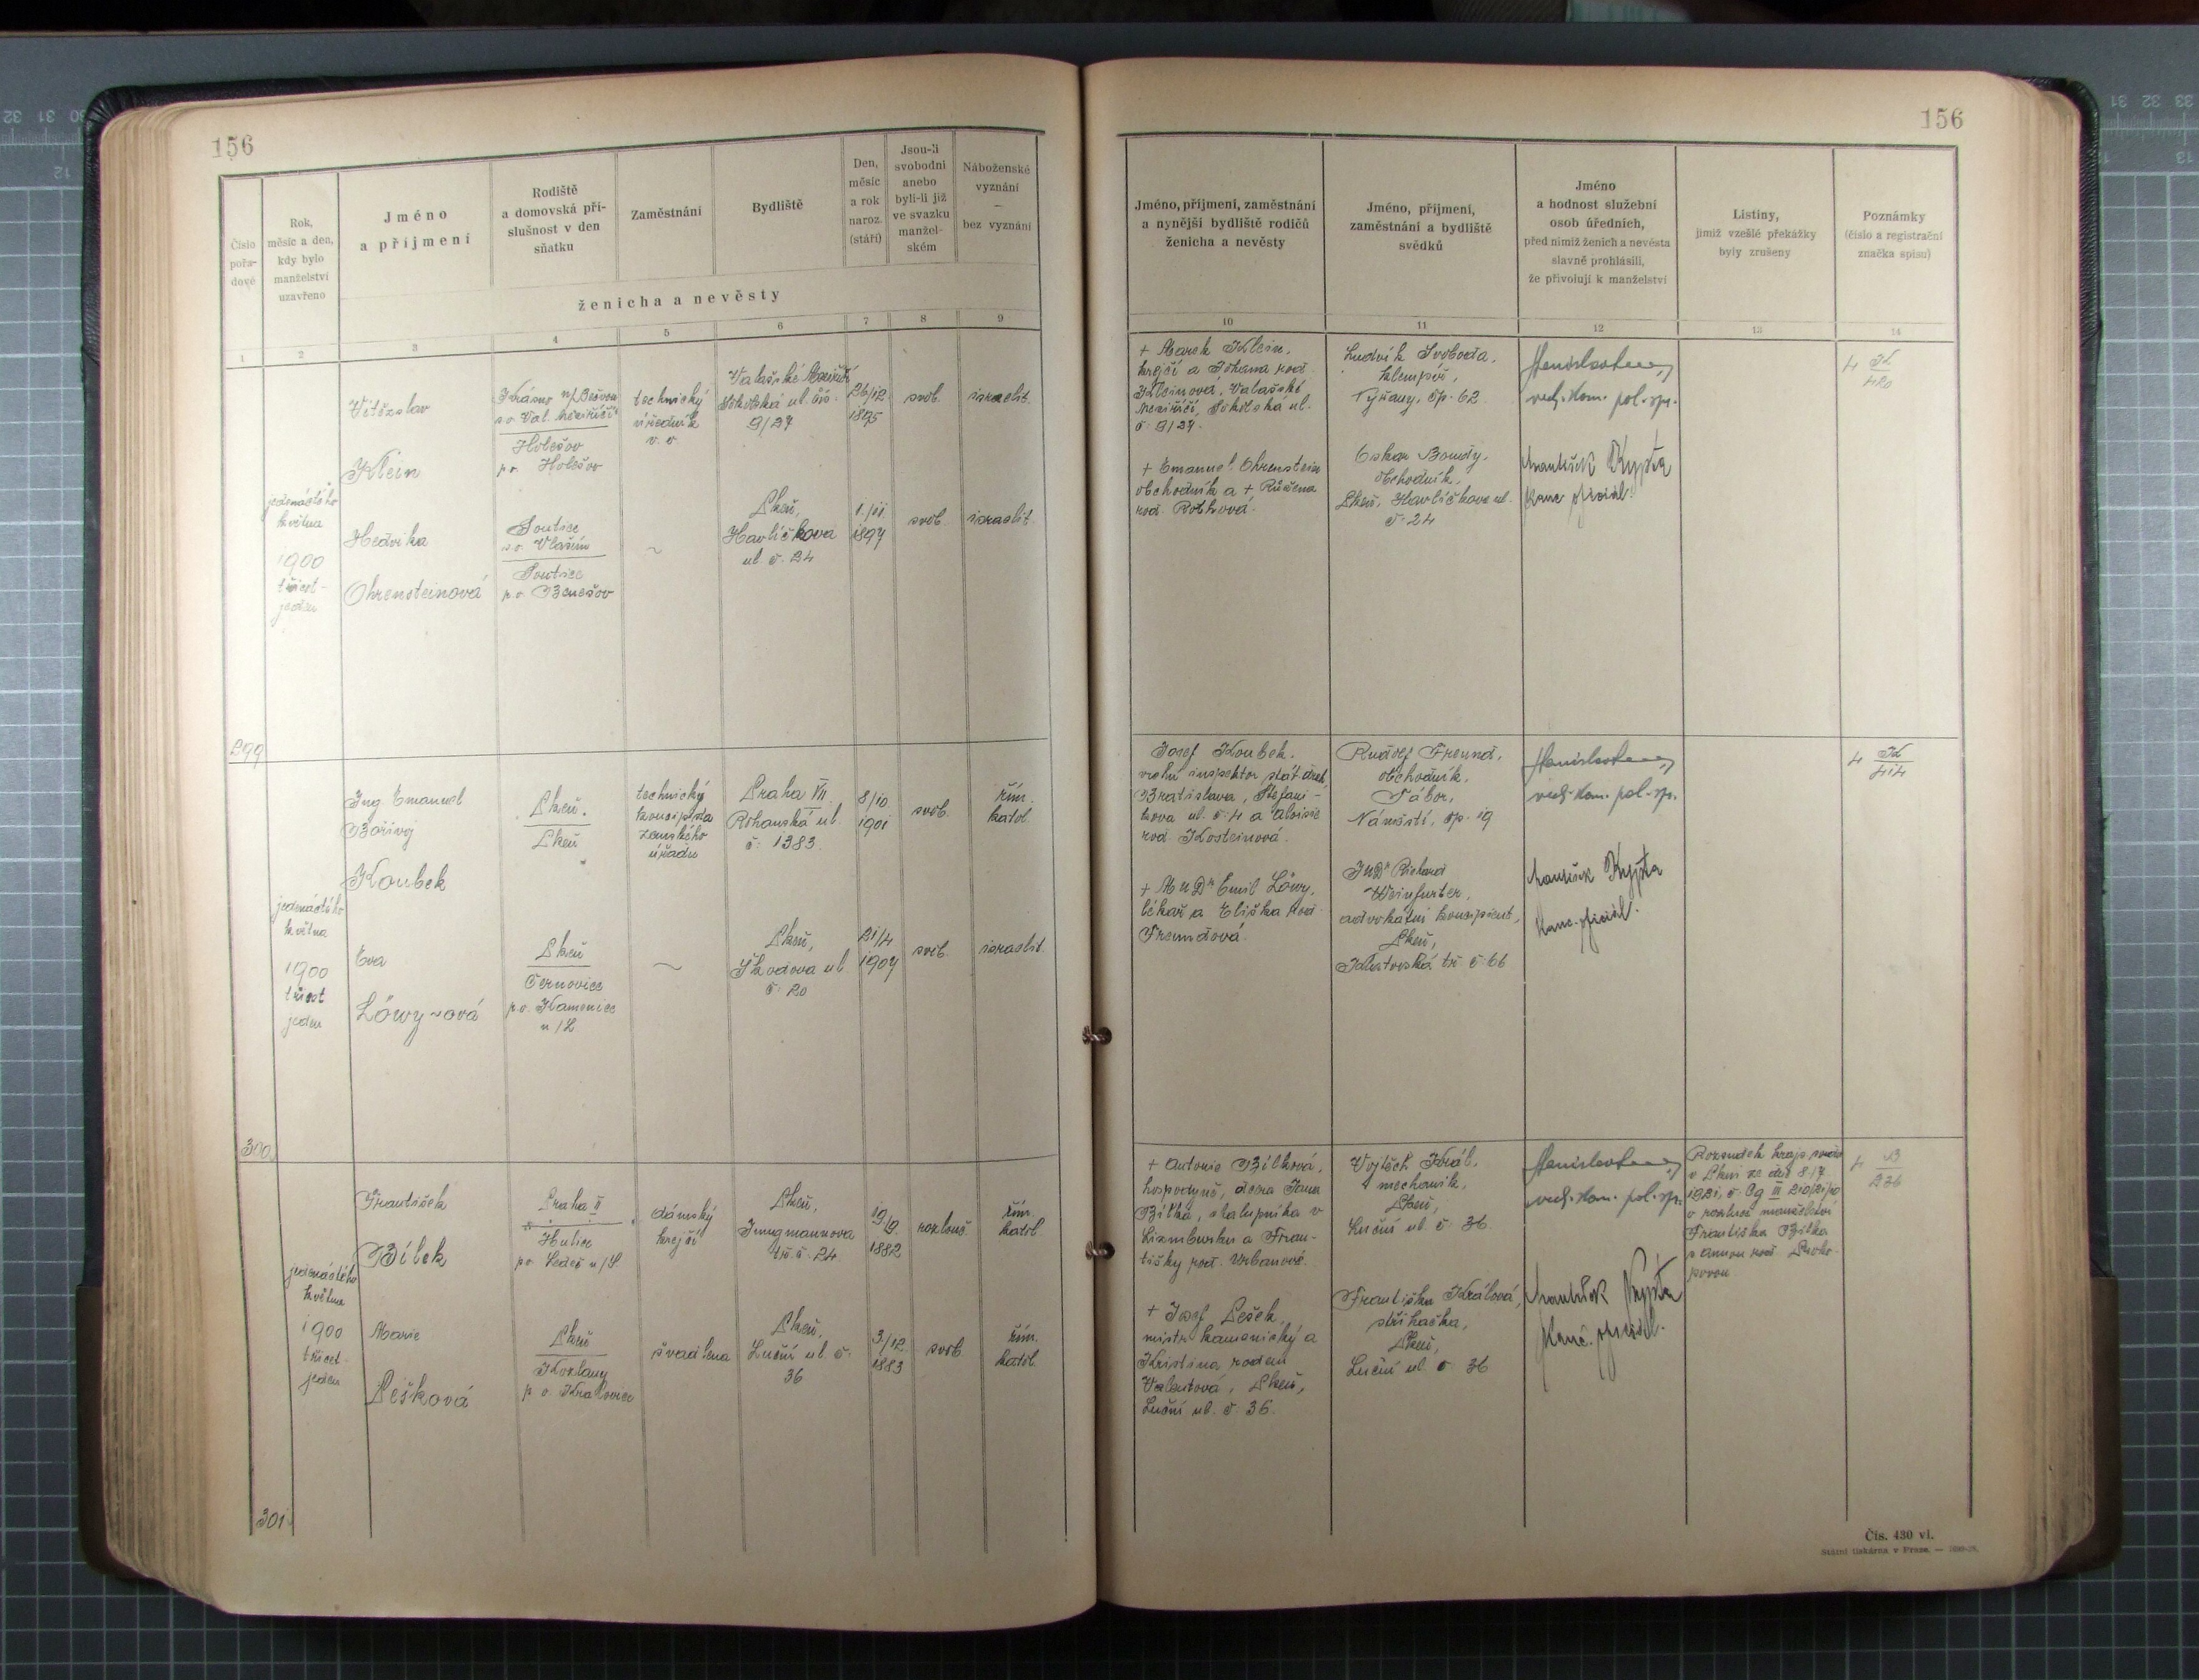 156
Číslo pořa-dové
Rok, měsíc a den, kdy bylo manželství uzavřeno
Jméno a příjmení
Rodiště a domovská pří-slušnost v den sňatku
Zaměstnání
Bydliště
Den, měsíc a rok naroz. (stáří)
Jsou-li svobodni anebo byli-li již ve svazku manžel-ském
Náboženské vyznání — bez vyznání
ženicha a nevěsty
1 2 3 4 5 6 7 8 9
299
jedenáctého
května
1900
třicet-
jeden
Vítězslav
Klein
Krásno n/Bečvou
Holešov
p.o. Holešov
technický
úředník
Valašské Meziříčí
Sokolská ul. čís.
9/27
26/12
1895
svob.
israelit.
Hedvika
Ohrensteinová
Soutice
s.o. Vlašim
Soutice
p.o. Benešov
~
Plzeň,
Havlíčkova
ul. č. 24
1897
svob.
israelit.
300
jedenáctého
května
1900
třicet
jeden
Ing. Emanuel
Bořivoj
Koubek
Plzeň.
Plzeň
technický
koncipista
zemského
úřadu
Praha VII
Rohanská ul.
č. 1383.
8/10
1901
svob.
řím.
katol.
Eva
Löwy-ová
Plzeň
Černovice
p.o. Kamenice
n/L
~
Plzeň,
Škodova ul
č. 20
21/4
1907
svob.
israelit.
301
jedenáctého
května
1900
třicet-
jeden
František
Bílek
Praha II
Hulice
po. Ledeč n/S
dámský
krejčí
Plzeň,
Jungmannova
tř. č. 24
19/9.
1882
rozlouč.
řím.
katol.
Marie
Pešková
Plzeň
Kozlany
p.o. Kralovice
švadlena
Plzeň,
Luční ul. č.
36
3/12
1883
svob.
řím.
katol.
156
Jméno, příjmení, zaměstnání a nynější bydliště rodičů ženicha a nevěsty
Jméno, příjmení, zaměstnání a bydliště svědků
Jméno a hodnost služební osob úředních, před nimiž ženich a nevěsta slavně prohlásili, že přivolují k manželství
Listiny, jimiž vzešlé překážky byly zrušeny
Poznámky (číslo a registrační značka spisu)
10 11 12 13 14
+ Marek Klein,
krejčí a Johana rod.
Kleinova, Valašské
Meziříčí, Sokolská ul.
č. 9/27.
+ Emanuel Ohrenstein
obchodník a + Růžena
rod. Rothová.
Ludvík Svoboda,
klempíř,
čp. 62
Oskar Bondy,
obchodník,
Plzeň, Havlíčkova ul.
č. 24
vrch. kom. pol. sp.
František Krypta
Kanc. oficiál.
4 K
420
Josef Koubek.
vrchní inspektor stát. drah,
Bratislava, Štefani-
kova ul. č. 4 a Aloisie
rod. Kosteinová.
+ MUDr Emil Löwy,
lékař a Eliška rod.
Freundová.
Rudolf Freund,
obchodník,
Tábor,
Náměstí, čp. 19
JUDr Richard
Weinfurter,
advokátní koncipient,
Plzeň,
Klatovská tř. č. 66
vrch. kom. pol. sp.
František Krypta
Kanc. oficiál.
4 K
414
+ Antonie Bílková,
hospodyně, dcera Jana
Bílka, chalupníka v
a Fran-
tišky rod. Urbanové.
+ Josef Pešek,
mistr kamenický a
Kristina rodem
Valentová, Plzeň,
Luční ul. č. 36.
Vojtěch Král,
mechanik,
Plzeň,
Luční ul. č. 36
Františka Králová,
Plzeň,
Luční ul. č. 36
vrch. kom. pol. sp.
František Krypta
Kanc. oficiál.
Rozsudek kraj. soudu
v Plzni ze dne 8./7.
1921, č. Cg III
o rozluce manželství
Františka Bílka
s Annou roz. Proko-
povou
4 B
236
Čís. 430 vl.
Státní tiskárna v Praze. —